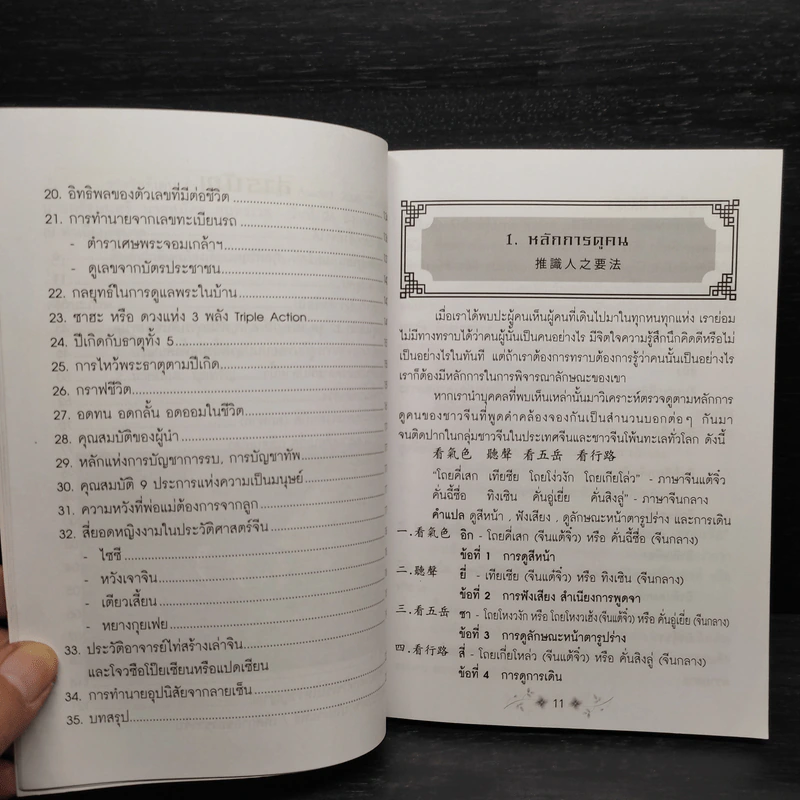 20. อิทธิพลของตัวเลขที่มีต่อชีวิต
21. การทำนายจากเลขทะเบียนรถ
- ตำราเศษพระจอมเกล้าฯ
- ดูเลขจากบัตรประชาชน
22. กลยุทธ์ในการดูแลพระในบ้าน
23. ซาฮะ หรือ ดวงแห่ง 3 พลัง Triple Action
24. ปีเกิดกับธาตุทั้ง 5
25. การไหว้พระธาตุตามปีเกิด
26. กราฟชีวิต
27. อดทน อดกลั้น อดออมในชีวิต
28. คุณสมบัติของผู้นำ
29. หลักแห่งการบัญชาการรบ, การบัญชาทัพ
30. คุณสมบัติ 9 ประการแห่งความเป็นมนุษย์
31. ความหวังที่พ่อแม่ต้องการจากลูก
32. สี่ยอดหญิงงามในประวัติศาสตร์จีน
- ไซซี
- หวังเจาจิน
- เตียวเสี้ยน
- หยางกุยเฟย
33. ประวัติอาจารย์ไท่สร้างเล่าจิน
และโจวซือโป๊ยเซียนหรือแปดเซียน
34. การทำนายอุปนิสัยจากลายเซ็น
35. บทสรุป
1. หลักการดูคน
推識人之要法
เมื่อเราได้พบปะผู้คนเห็นผู้คนที่เดินไปมาในทุกหนทุกแห่ง เราย่อม
ไม่มีทางทราบได้ว่าคนผู้นั้นเป็นคนอย่างไร มีจิตใจความรู้สึกนึกคิดดีหรือไม่
เป็นอย่างไรในทันที แต่ถ้าเราต้องการทราบต้องการรู้ว่าคนนั้นเป็นอย่างไร
เราก็ต้องมีหลักการในการพิจารณาลักษณะของเขา
หากเรานำบุคคลที่พบเห็นเหล่านั้นมาวิเคราะห์ตรวจดูตามหลักการ
ดูคนของชาวจีนที่พูดคำคล้องจองกันเป็นสำนวนบอกต่อๆ กันมา
จนติดปากในกลุ่มชาวจีนในประเทศจีนและชาวจีนโพ้นทะเลทั่วโลก ดังนี้
看氣色 聽聲 看五岳 看行路
"โถยคี่เสก เทียซีย โถยโง่วงัก โถยเกียโล่ว" - ภาษาจีนแต้จิ๋ว
คั่นฉี้ซื่อ ทิงเซิน คั่นอู่เยี่ย คั่นสิงลู่" - ภาษาจีนกลาง
คำแปล ดูสีหน้า , ฟังเสียง , ดูลักษณะหน้าตารูปร่าง และการเดิน
一.看氣色 อิก - โถยคี่เสก (จีนแต้จิ๋ว) หรือ คั่นฉี้ซื่อ (จีนกลาง)
ข้อที่ 1 การดูสีหน้า
二.聽聲 ยี่ - เทียเซีย (จีนแต้จิ๋ว) หรือ ทิงเซิน (จีนกลาง)
ข้อที่ 2 การฟังเสียง สำเนียงการพูดจา
三.看五岳 ซา - โถยโหงวงัก หรือ โถยโหงวเฮ้ง(จีนแต้จิ๋ว) หรือ คั่นอู่เยี่ย (จีนกลาง)
ข้อที่ 3 การดูลักษณะหน้าตารูปร่าง
四.看行路 สี่ - โถยเกี่ยโหล่ว (จีนแต้จิ๋ว) หรือ คั่นสิงลู่ (จีนกลาง)
ข้อที่ 4 การดูการเดิน
11